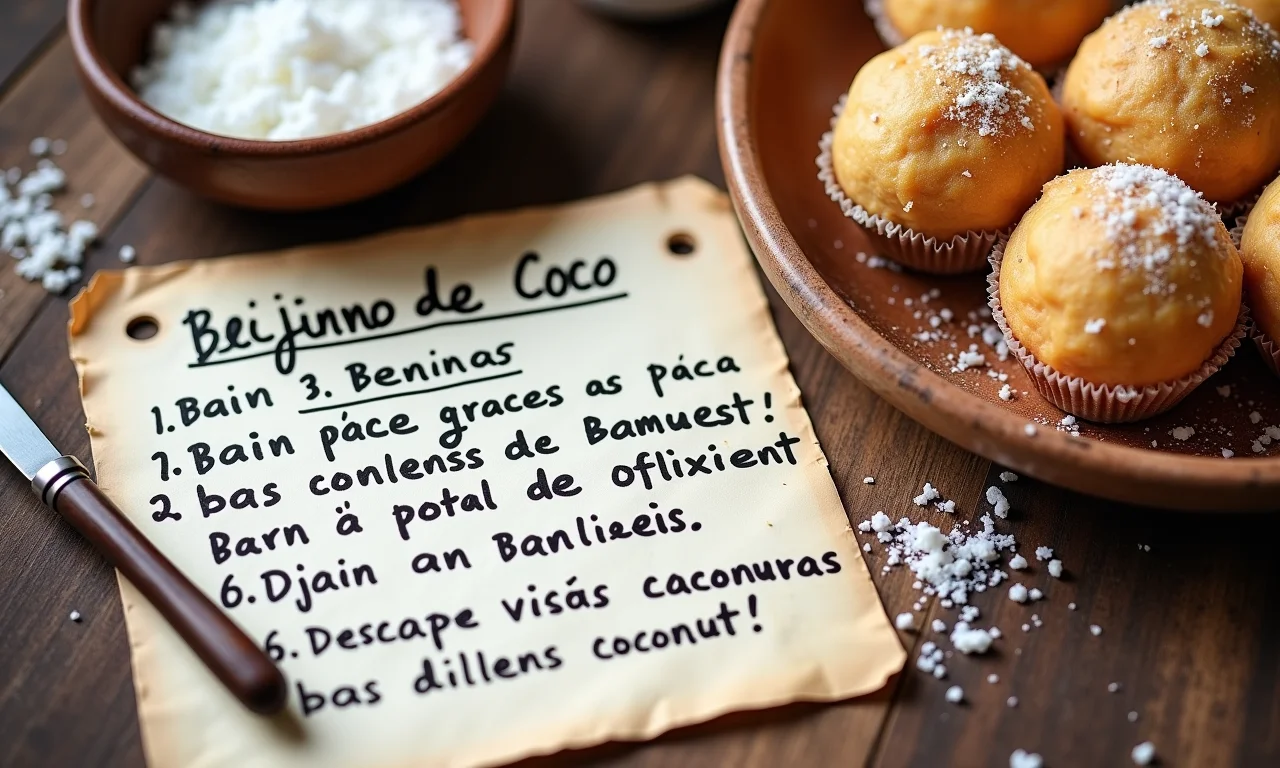 Beijinno de Coco
1. Bain 3. Beninas
7. Bain páce graces as páca
2 bas conlenss de Bamuest!
Barn ä potal de oflixient
6. Djain an Banlieeis.
6. Descape visás caconuras
bas dillens coconut!